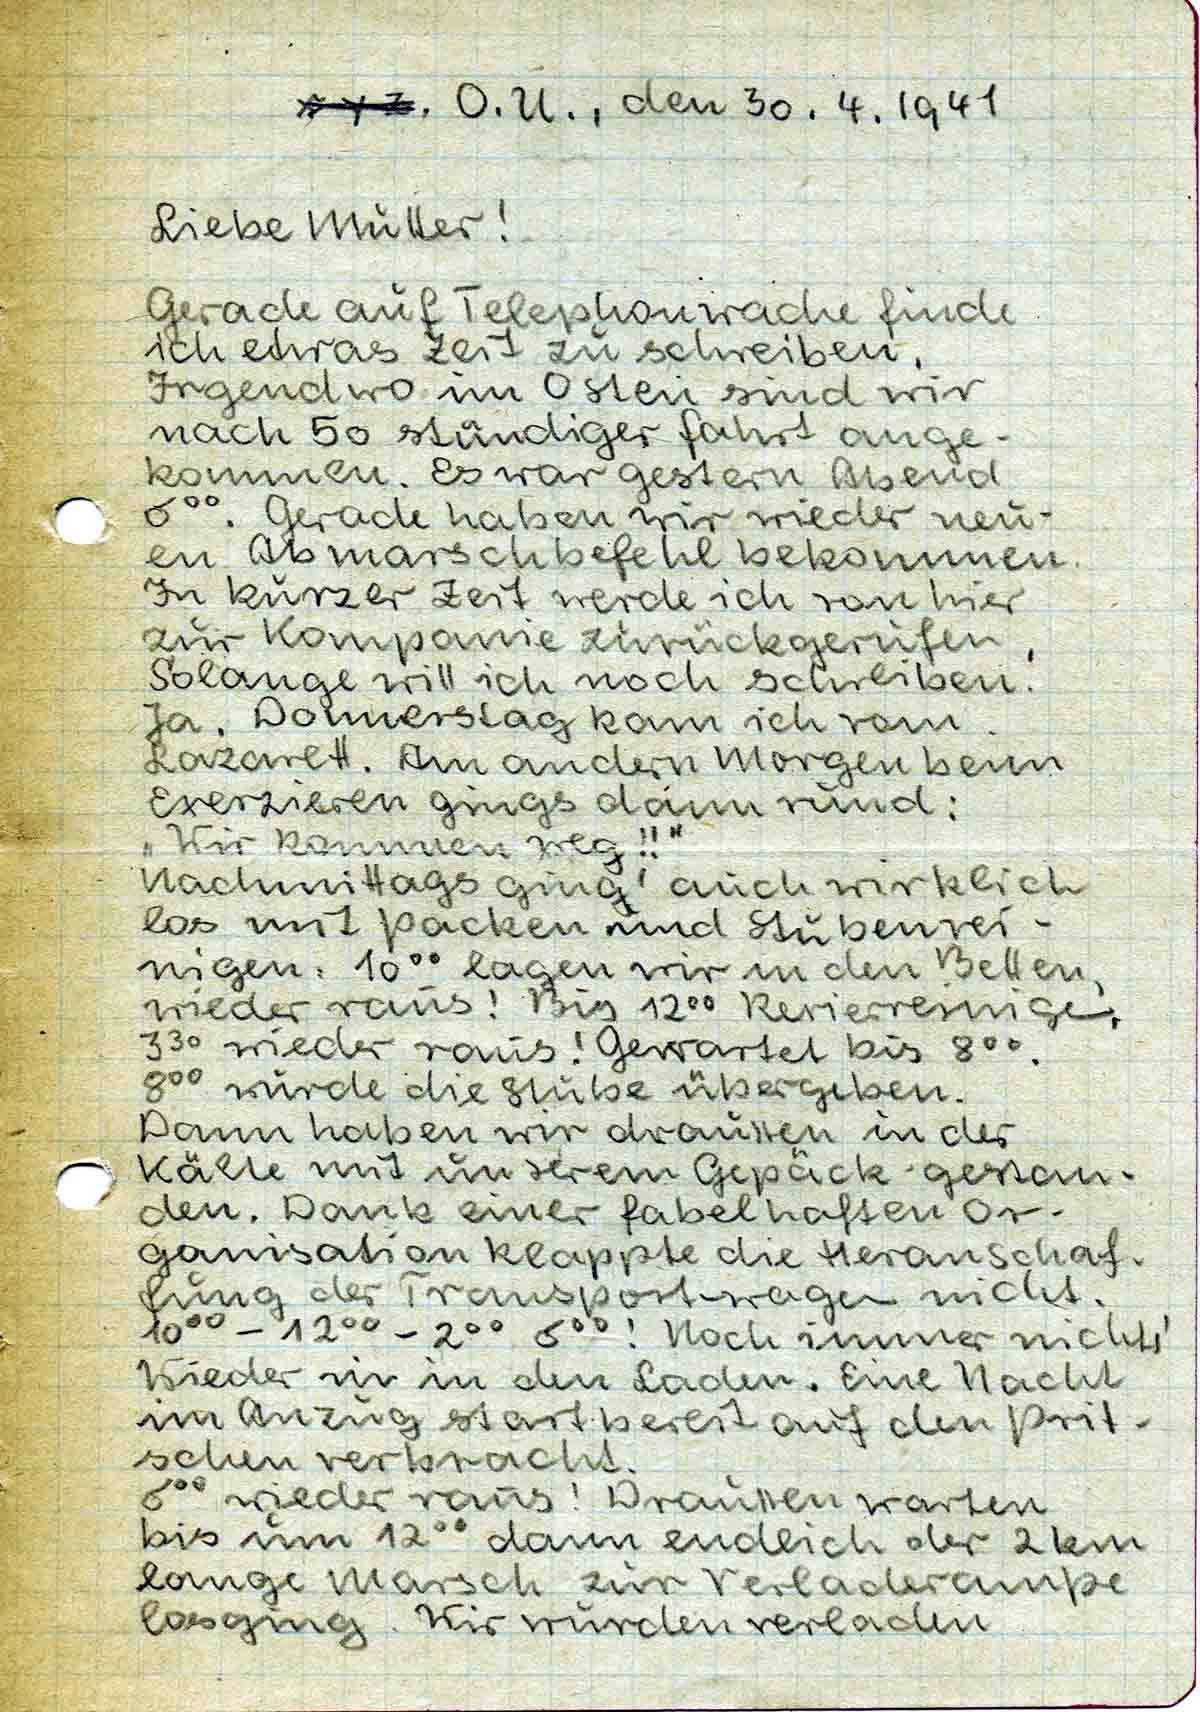 O.U., den 30.4.1941
Liebe Mutter!
Gerade auf Telephonwache finde
ich etwas Zeit zu schreiben.
Irgendwo im Osten sind wir
nach 50 stündiger Fahrt ange-
kommen. Es war gestern Abend
6⁰⁰. Gerade haben wir wieder neu-
en Abmarschbefehl bekommen.
In kurzer Zeit werde ich von hier
zur Kompanie zurückgerufen,
Solange will ich noch schreiben.
Ja, Donnerstag kam ich vom
Lazarett. Am andern Morgen beim
Exerzieren gings dann rund:
„Wir kommen weg!!"
Nachmittags ging' auch wirklich
los mit packen und Stubenrei-
nigen. 10⁰⁰ lagen wir in den Betten,
wieder raus! Bis 12⁰⁰ Revierreinige.
3³⁰ wieder raus! Gewartet bis 8⁰⁰.
8⁰⁰ wurde die Stube übergeben.
Dann haben wir draußen in der
Kälte mit unserem Gepäck gestan-
den. Dank einer fabelhaften Or-
ganisation klappte die Heranschaf-
fung der Transportwagen nicht.
10⁰⁰ - 12⁰⁰ - 2⁰⁰ 6⁰⁰! Noch immer nichts!
Wieder in den Laden. Eine Nacht
im Anzug startbereit auf den Prit-
schen verbracht.
6⁰⁰ wieder raus! Draußen warten
bis um 12⁰⁰ dann endlich der 2 km
lange Marsch zur Verladerampe
losging. Wir wurden verladen